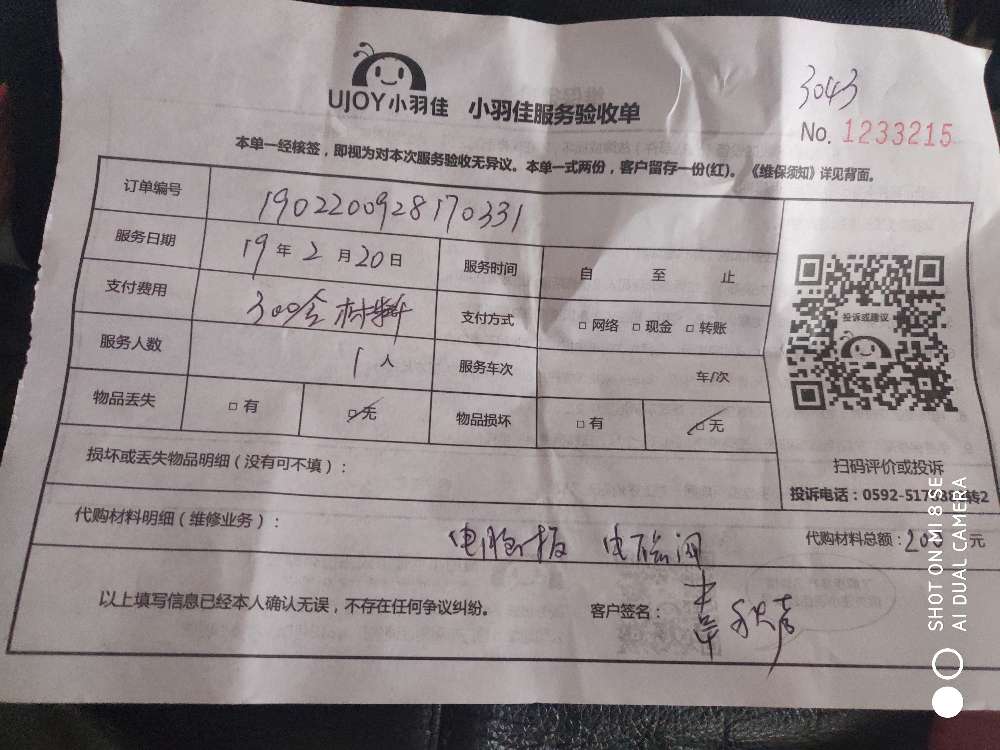 UJOY小羽佳 小羽佳服务验收单
3043
No. 1233215
本单一经核签，即视为对本次服务验收无异议。本单一式两份，客户留存一份(红)。《维保须知》详见背面。
订单编号 1902200928170331
服务日期 19年2月20日 服务时间 自 至 止
支付费用 300含材料 支付方式 □网络 □现金 □转账
服务人数 1人 服务车次 车/次
物品丢失 □有 □无 物品损坏 □有 □无
投诉或建议
扫码评价或投诉
投诉电话：0592-517 转2
损坏或丢失物品明细（没有可不填）：
代购材料明细（维修业务）： 电脑板 电磁阀 代购材料总额：200元
以上填写信息已经本人确认无误，不存在任何争议纠纷。 客户签名：
SHOT ON MI 8 SE
AI DUAL CAMERA